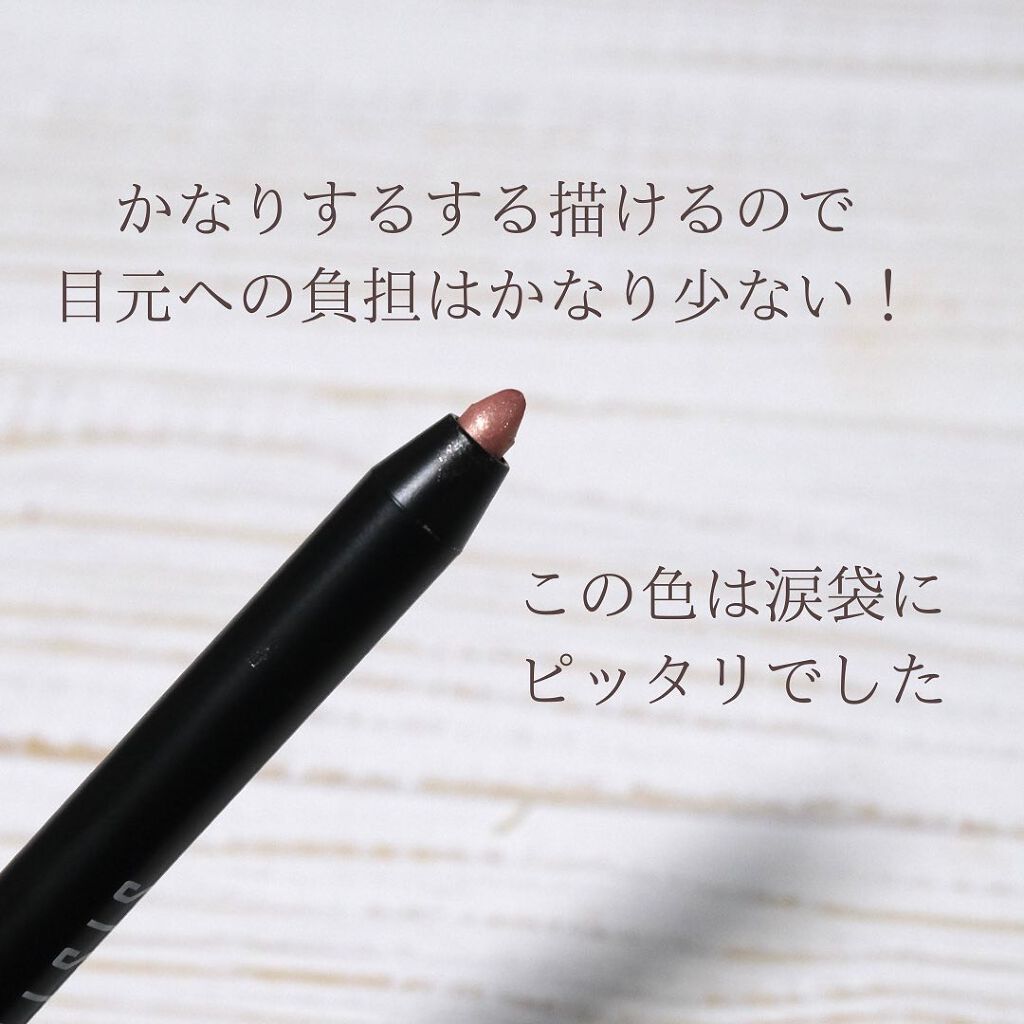 かなりするする描けるので
目元への負担はかなり少ない！
この色は涙袋に
ピッタリでした